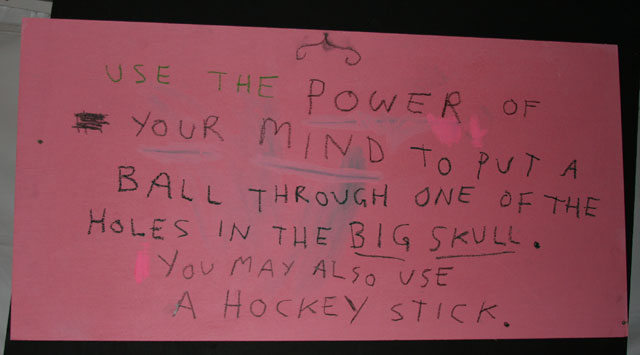 USE THE POWER OF
YOUR MIND TO PUT A
BALL THROUGH ONE OF THE
HOLES IN THE BIG SKULL.
YOU MAY ALSO USE
A HOCKEY STICK.